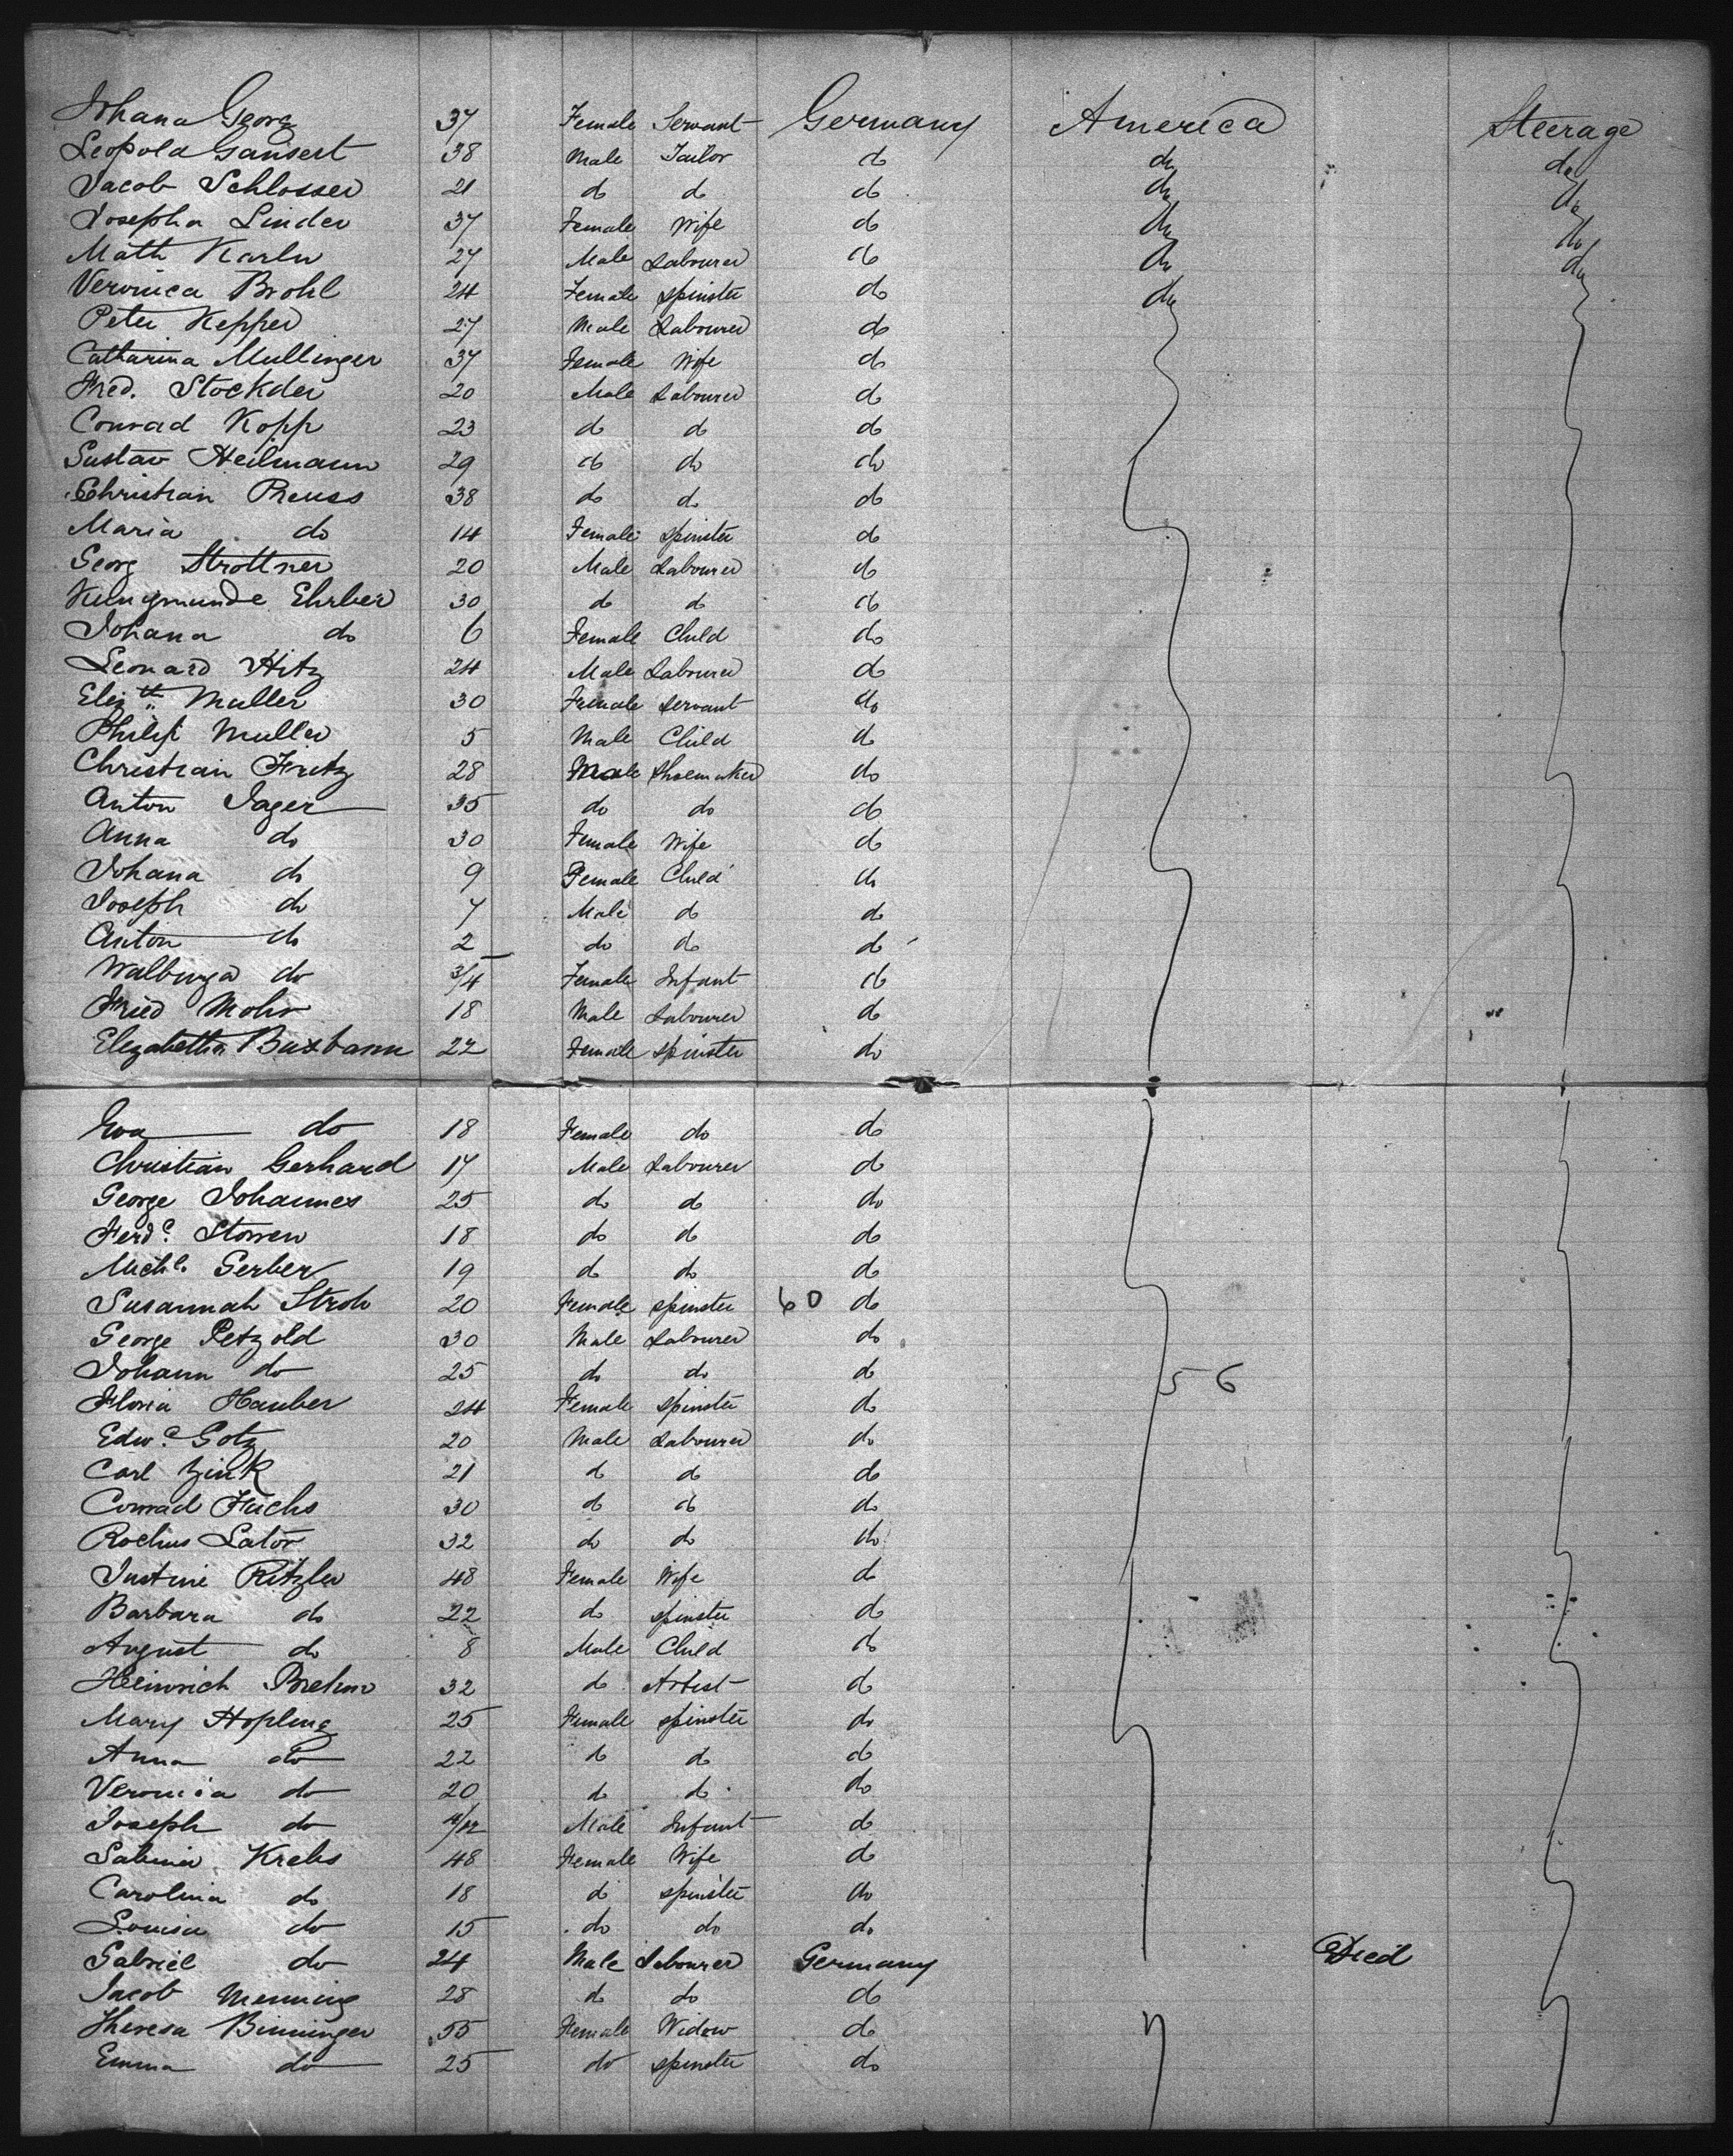 Johana Georg 37 Female Servant Germany America Steerage
Leopold Gansert 38 Male Tailor do do do
Jacob Schlosser 21 do do do do do
Josepha Linder 37 Female Wife do do do
Math Karlw 27 Male Labourer do do do
Veronica Brohl 24 Female Spinster do do
Peter Kepper 27 Male Labourer do
Catharina Mullinger 37 Female Wife do
Fred. Stockder 20 Male Labourer do
Conrad Kopp 23 do do do
Gustav Heilmann 29 do do do
Christian Preuss 38 do do do
Maria do 14 Female Spinster do
Georg Strottner 20 Male Labourer do
Kungmunde Ehrber 30 do do do
Johana do 6 Female Child do
Leonard Hitz 24 Male Labourer do
Elizth Muller 30 Female Servant do
Philip Muller 5 Male Child do
Christian Fritz 28 Male Shoemaker do
Anton Jager 35 do do do
Anna do 30 Female Wife do
Johana do 9 Female Child do
Joseph do 7 Male do do
Anton do 2 do do do
Walburga do 3/4 Female Infant do
Fried Mohr 18 Male Labourer do
Elizabetha Buxbaum 22 Female Spinster do
Eva do 18 Female do do
Christian Gerhard 17 Male Labourer do
George Johannes 25 do do do
Ferd. 18 do do do
Michl. Gerber 19 do do do
Susannah Stroh 20 Female Spinster 60 do
George Petzold 30 Male Labourer do
Johann do 25 do do do 56
Floria Hauber 24 Female Spinster do
Edwd. Gotz 20 Male Labourer do
Carl Zink 21 do do do
Conrad Fuchs 30 do do do
Rochus Lator 32 do do do
Justine Ritzler 48 Female Wife do
Barbara do 22 do Spinster do
August do 8 Male Child do
Heinrich Brehm 32 do Artist do
Mary Hopling 25 Female Spinster do
Anna do 22 do do do
Veronica do 20 do do do
Joseph do Male Infant do
Sabina Krebs 48 Female Wife do
Carolina do 18 do Spinster do
Louisa do 15 do do do
Gabriel do 24 Male Labourer Germany Died
Jacob Menning 28 do do do
Theresa Binninger 55 Female Widow do
Emma do 25 do Spinster do